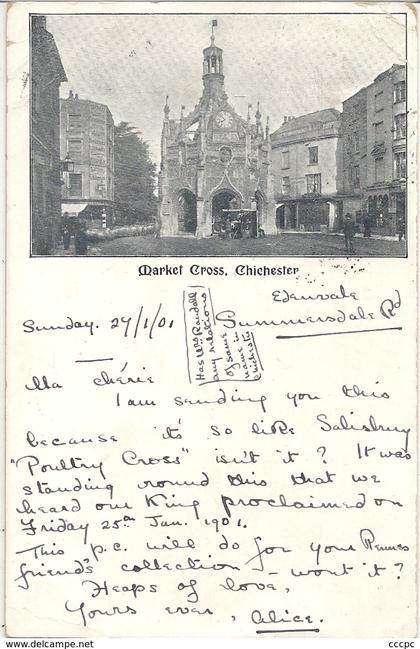 Market Cross, Chichester
Edenvale
Summersdale Rd
Sunday. 27/1/01
Has Mrs Randall
any relations
of same
name in
Chichester
Ma chérie
I am sending you this
because it's so like Salisbury
"Poultry Cross" isn't it? It was
standing round this that we
heard our King proclaimed on
Friday 25th Jan. 1901.
This p.c. will do for your Rennes
friend's collection - won't it?
Heaps of love,
Yours ever, Alice.
cccpc
www.delcampe.net